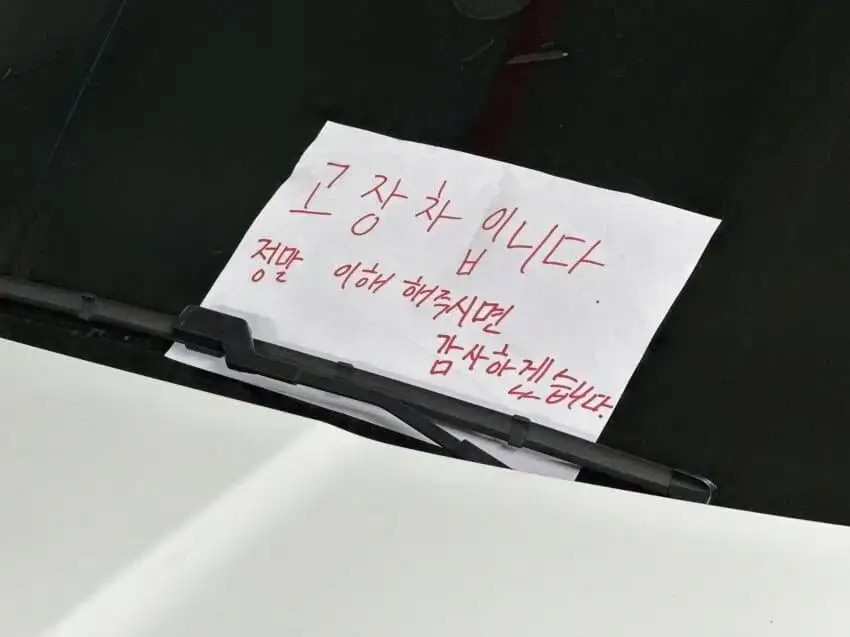 고장차 입니다
정말 이해 해주시면
감사하겠습니다.